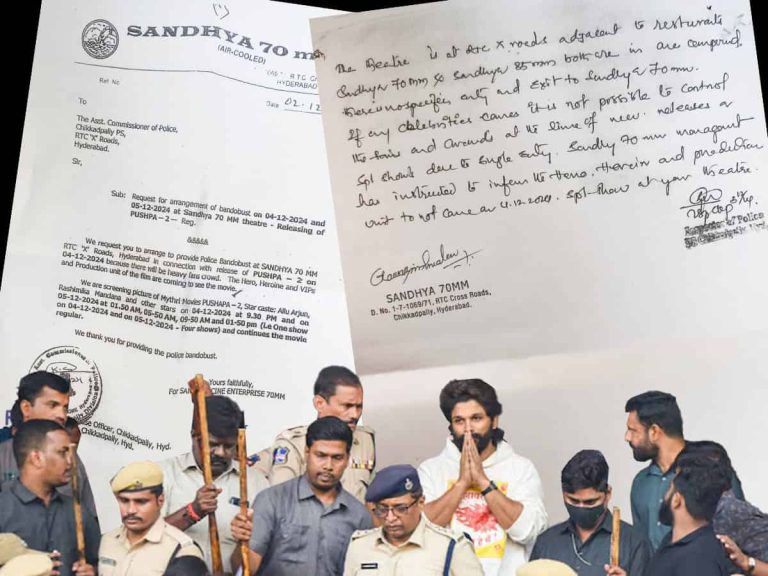 SANDHYA 70 mm
(AIR-COOLED)
RTC
HYDERABAD
Ref. No
Date 02.12
To
The Asst. Commissioner of Police,
Chikkadpally PS,
RTC "X" Roads,
Hyderabad.
Sir,
Sub: Request for arrangement of bandobust on 04-12-2024 and
05-12-2024 at Sandhya 70 MM theatre - Releasing of
PUSHPA – 2 – Reg.
&&&&&
We request you to arrange to provide Police Bandobust at SANDHYA 70 MM
RTC 'X' Roads, Hyderabad in connection with release of PUSHPA – 2 on
04-12-2024 because there will be heavy fans crowd. The Hero, Heroine and VIPs
and Production unit of the film are coming to see the movie.
We are screening picture of Mythri Movies PUSHAPA – 2, Star caste: Allu Arjun,
Rashimika Mandana and other stars on 04-12-2024 at 9.30 PM and on
05-12-2024 at 01.50 AM, 05-50 AM, 09-50 AM and 01-50 pm (i.e One show
on 04-12-2024 and on 05-12-2024 - Four shows) and continues the movie
regular.
We thank you for providing the police bandobust.
Yours faithfully,
For CINE ENTERPRISE 70MM
Asst. Commissioner of Police
Officer, Chikkadpally, Hyd.
Chikkadpally, Hyd.
The Theatre is at RTC X roads adjacent to
Sandhya 70MM Sandhya 35MM both are in one compound.
there is no specific entry and exit to Sandhya 70MM.
If any celebrities comes it is not possible to control
the fans and crowds at the time of new releases or
Spl shows due to single entry. Sandhya 70 MM
has instructed to inform the Hero, Heroin and production
unit to not come on 4.12.2024. Spl-show at your theatre.
Inspector of Police
SANDHYA 70MM
D. No. 1-7-1069/71, RTC Cross Roads,
Chikkadpally, Hyderabad.